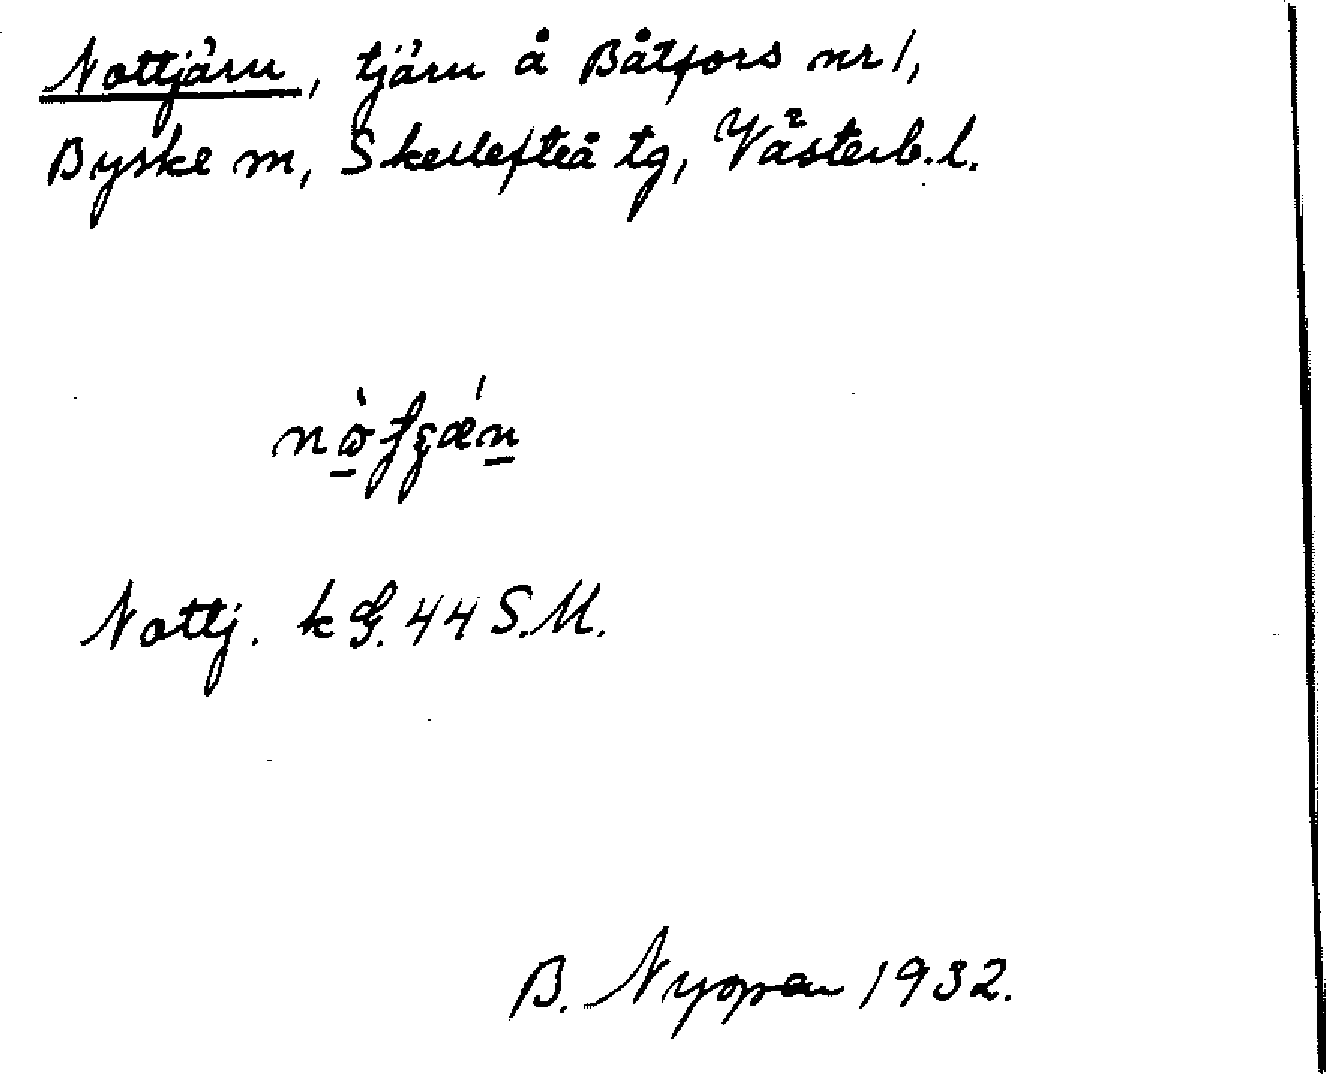 Nottjärn, tjärn å Båtfors nr 1,
Byske sn, Skellefteå tg, Västerb. l.
Nottj. kG. 44 S.M.
B. 1932.